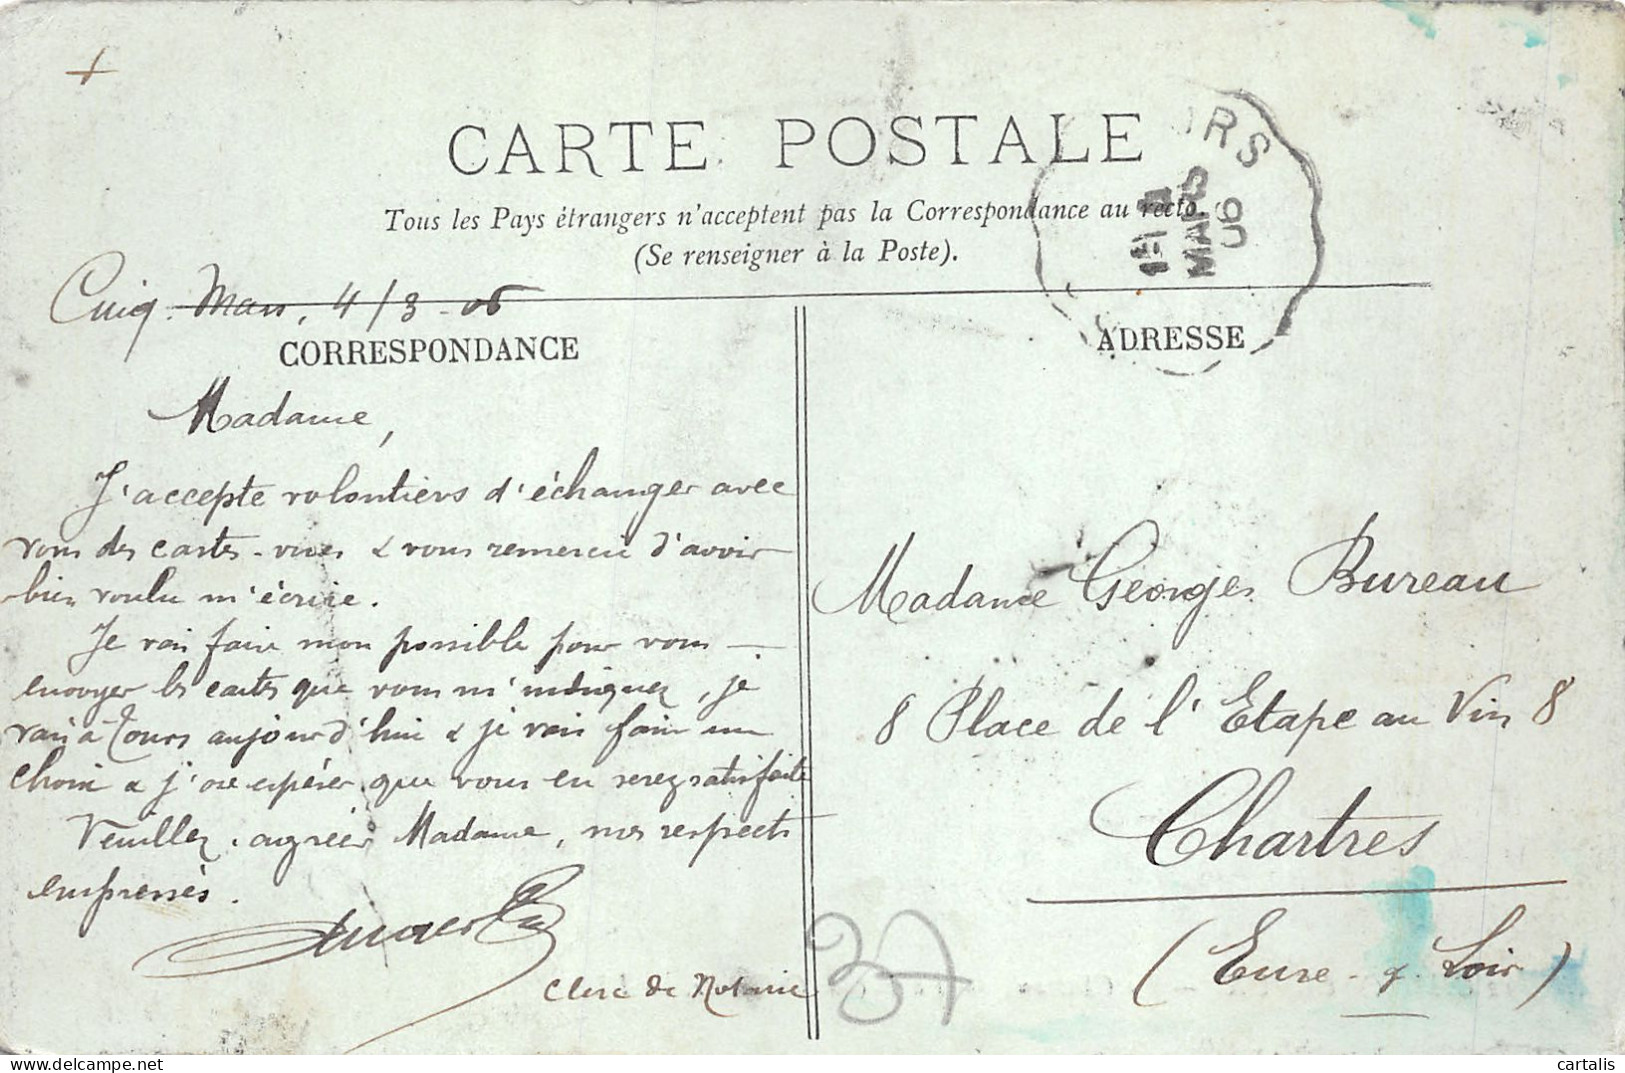 CARTE POSTALE
Tous les Pays étrangers n'acceptent pas la Correspondance au recto.
(Se renseigner à la Poste).
Cinq-Mars, 4/3-06
CORRESPONDANCE
Madame,
J'accepte volontiers d'échanger avec
vous des cartes-vues & vous remercie d'avoir
bien voulu m'écrire.
Je vais faire mon possible pour vous
envoyer les cartes que vous m'indiquez, je
vais à Tours aujourd'hui & je vais faire un
choix & j'ose espérer que vous en serez satisfaite
Veuillez agréer Madame, nos respects
empressés.
Clerc de Notaire
ORS
MARS
06
ADRESSE
Madame Georges Bureau
8 Place de l'Etape au Vin 8
Chartres
(Eure-&-Loir)
37
cartalis